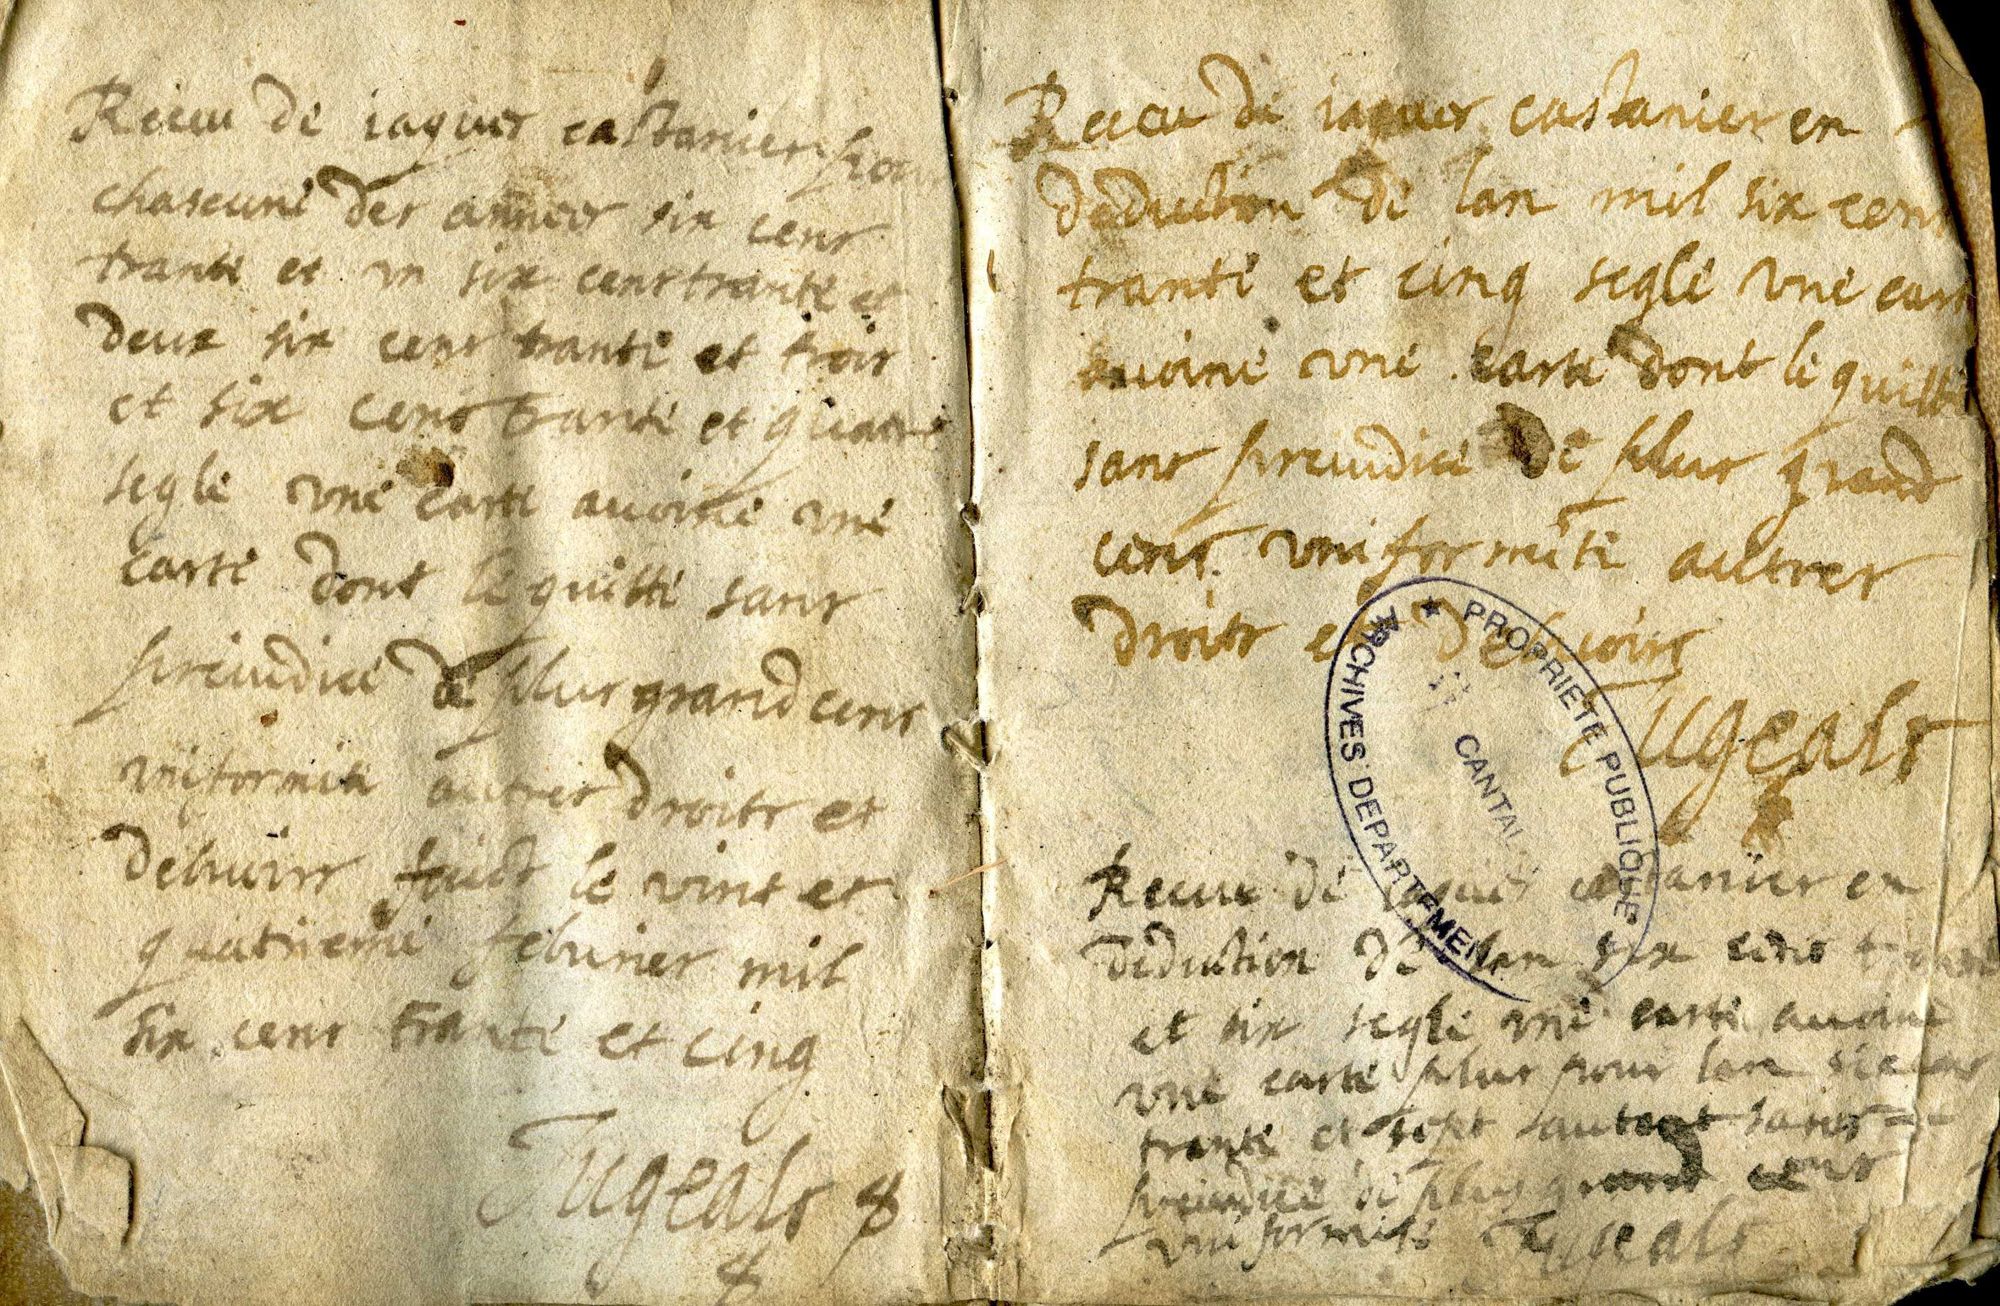 Receu de iaques castanier pour
chascune des annees six cens
trante et vn six cens trante et
deux six cens trante et trois
et six cens trante et quatre
segle vne carte auoine vne
carte dont le quitte sans
preiudice de plus grand cens
vniformite autres droits et
debuoirs faict le vint et
quatrieme feburier mil
six cens trante et cinq
Jugeals
Receu de iaques castanier en
deduction de lan mil six cens
trante et cinq segle vne carte
auoine vne carte dont le quitte
sans preiudice de plus grand
cens vniformite autres
droits et debuoirs
Jugeals
Receu de iaques castanier en
deduction de lan six cens trante
et six segle vne carte auoine
vne carte plus pour lan six cens
trante et sept autant sans
preiudice de plus grand cens
vniformite Jugeals
★ PROPRIETE PUBLIQUE ★
ARCHIVES DEPARTEMEN
CANTAL